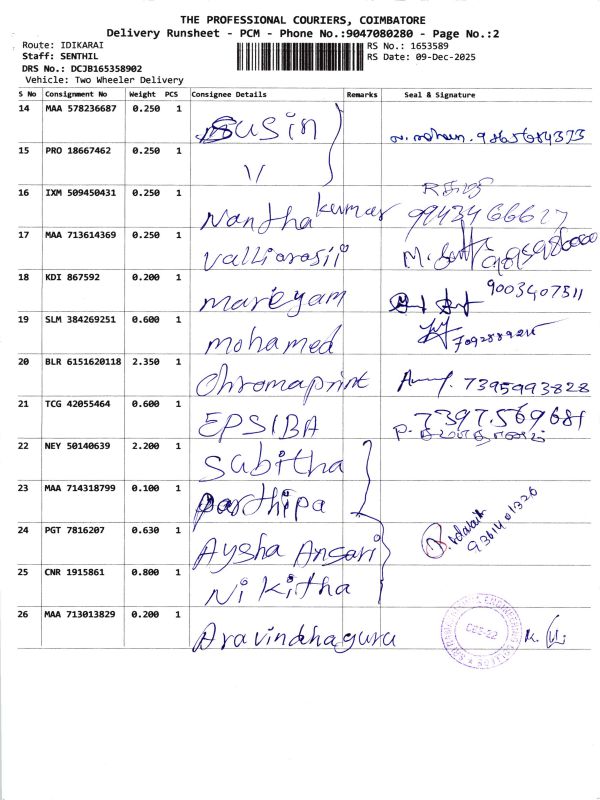 THE PROFESSIONAL COURIERS, COIMBATORE
Delivery Runsheet - PCM - Phone No.:9047080280 - Page No.:2
Route: IDIKARAI RS No.: 1653589
Staff: SENTHIL RS Date: 09-Dec-2025
DRS No.: DCJB165358902
Vehicle: Two Wheeler Delivery
S No Consignment No Weight PCS Consignee Details Remarks Seal & Signature
14 MAA 578236687 0.250 1 Susin
15 PRO 18667462 0.250 1 11
16 IXM 509450431 0.250 1 Nantha kumar
17 MAA 713614369 0.250 1 Valliarasii
18 KDI 867592 0.200 1 Mareyam 9003407511
19 SLM 384269251 0.600 1 mohamed
20 BLR 6151620118 2.350 1 Chromaprint 7395993828
21 TCG 42055464 0.600 1 EPSIBA 7397569681
22 NEY 50140639 2.200 1 Sabitha
23 MAA 714318799 0.100 1 Parthipa
24 PGT 7816207 0.630 1 Aysha Ansari
25 CNR 1915861 0.800 1 Nikitha
26 MAA 713013829 0.200 1 Aravindhaguru